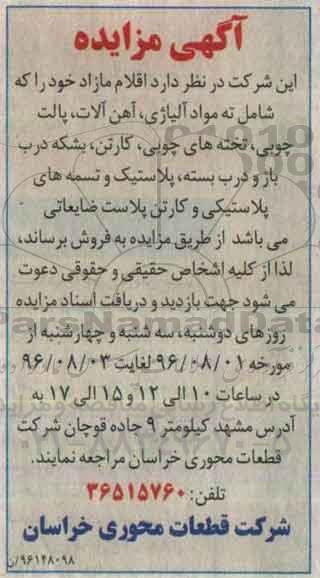 آگهی مزایده
این شرکت در نظر دارد اقلام مازاد خود را که
شامل ته مواد آلیاژی، آهن آلات، پالت
چوبی، تخته های چوبی، کارتن، بشکه درب
باز و درب بسته، پلاستیک و تسمه های
پلاستیکی و کارتن پلاست ضایعاتی
می باشد از طریق مزایده به فروش برساند،
لذا از کلیه اشخاص حقیقی و حقوقی دعوت
می شود جهت بازدید و دریافت اسناد مزایده
روزهای دوشنبه، سه شنبه و چهارشنبه از
مورخه ۹۶/۰۸/۰۱ لغایت ۹۶/۰۸/۰۳
در ساعات ۱۰ الی ۱۲ و ۱۵ الی ۱۷ به
آدرس مشهد کیلومتر ۹ جاده قوچان شرکت
قطعات محوری خراسان مراجعه نمایند.
تلفن: ۳۶۵۱۵۷۶۰
شرکت قطعات محوری خراسان
۹۶۱۴۸۰۹۸/ن
ParsNamadData